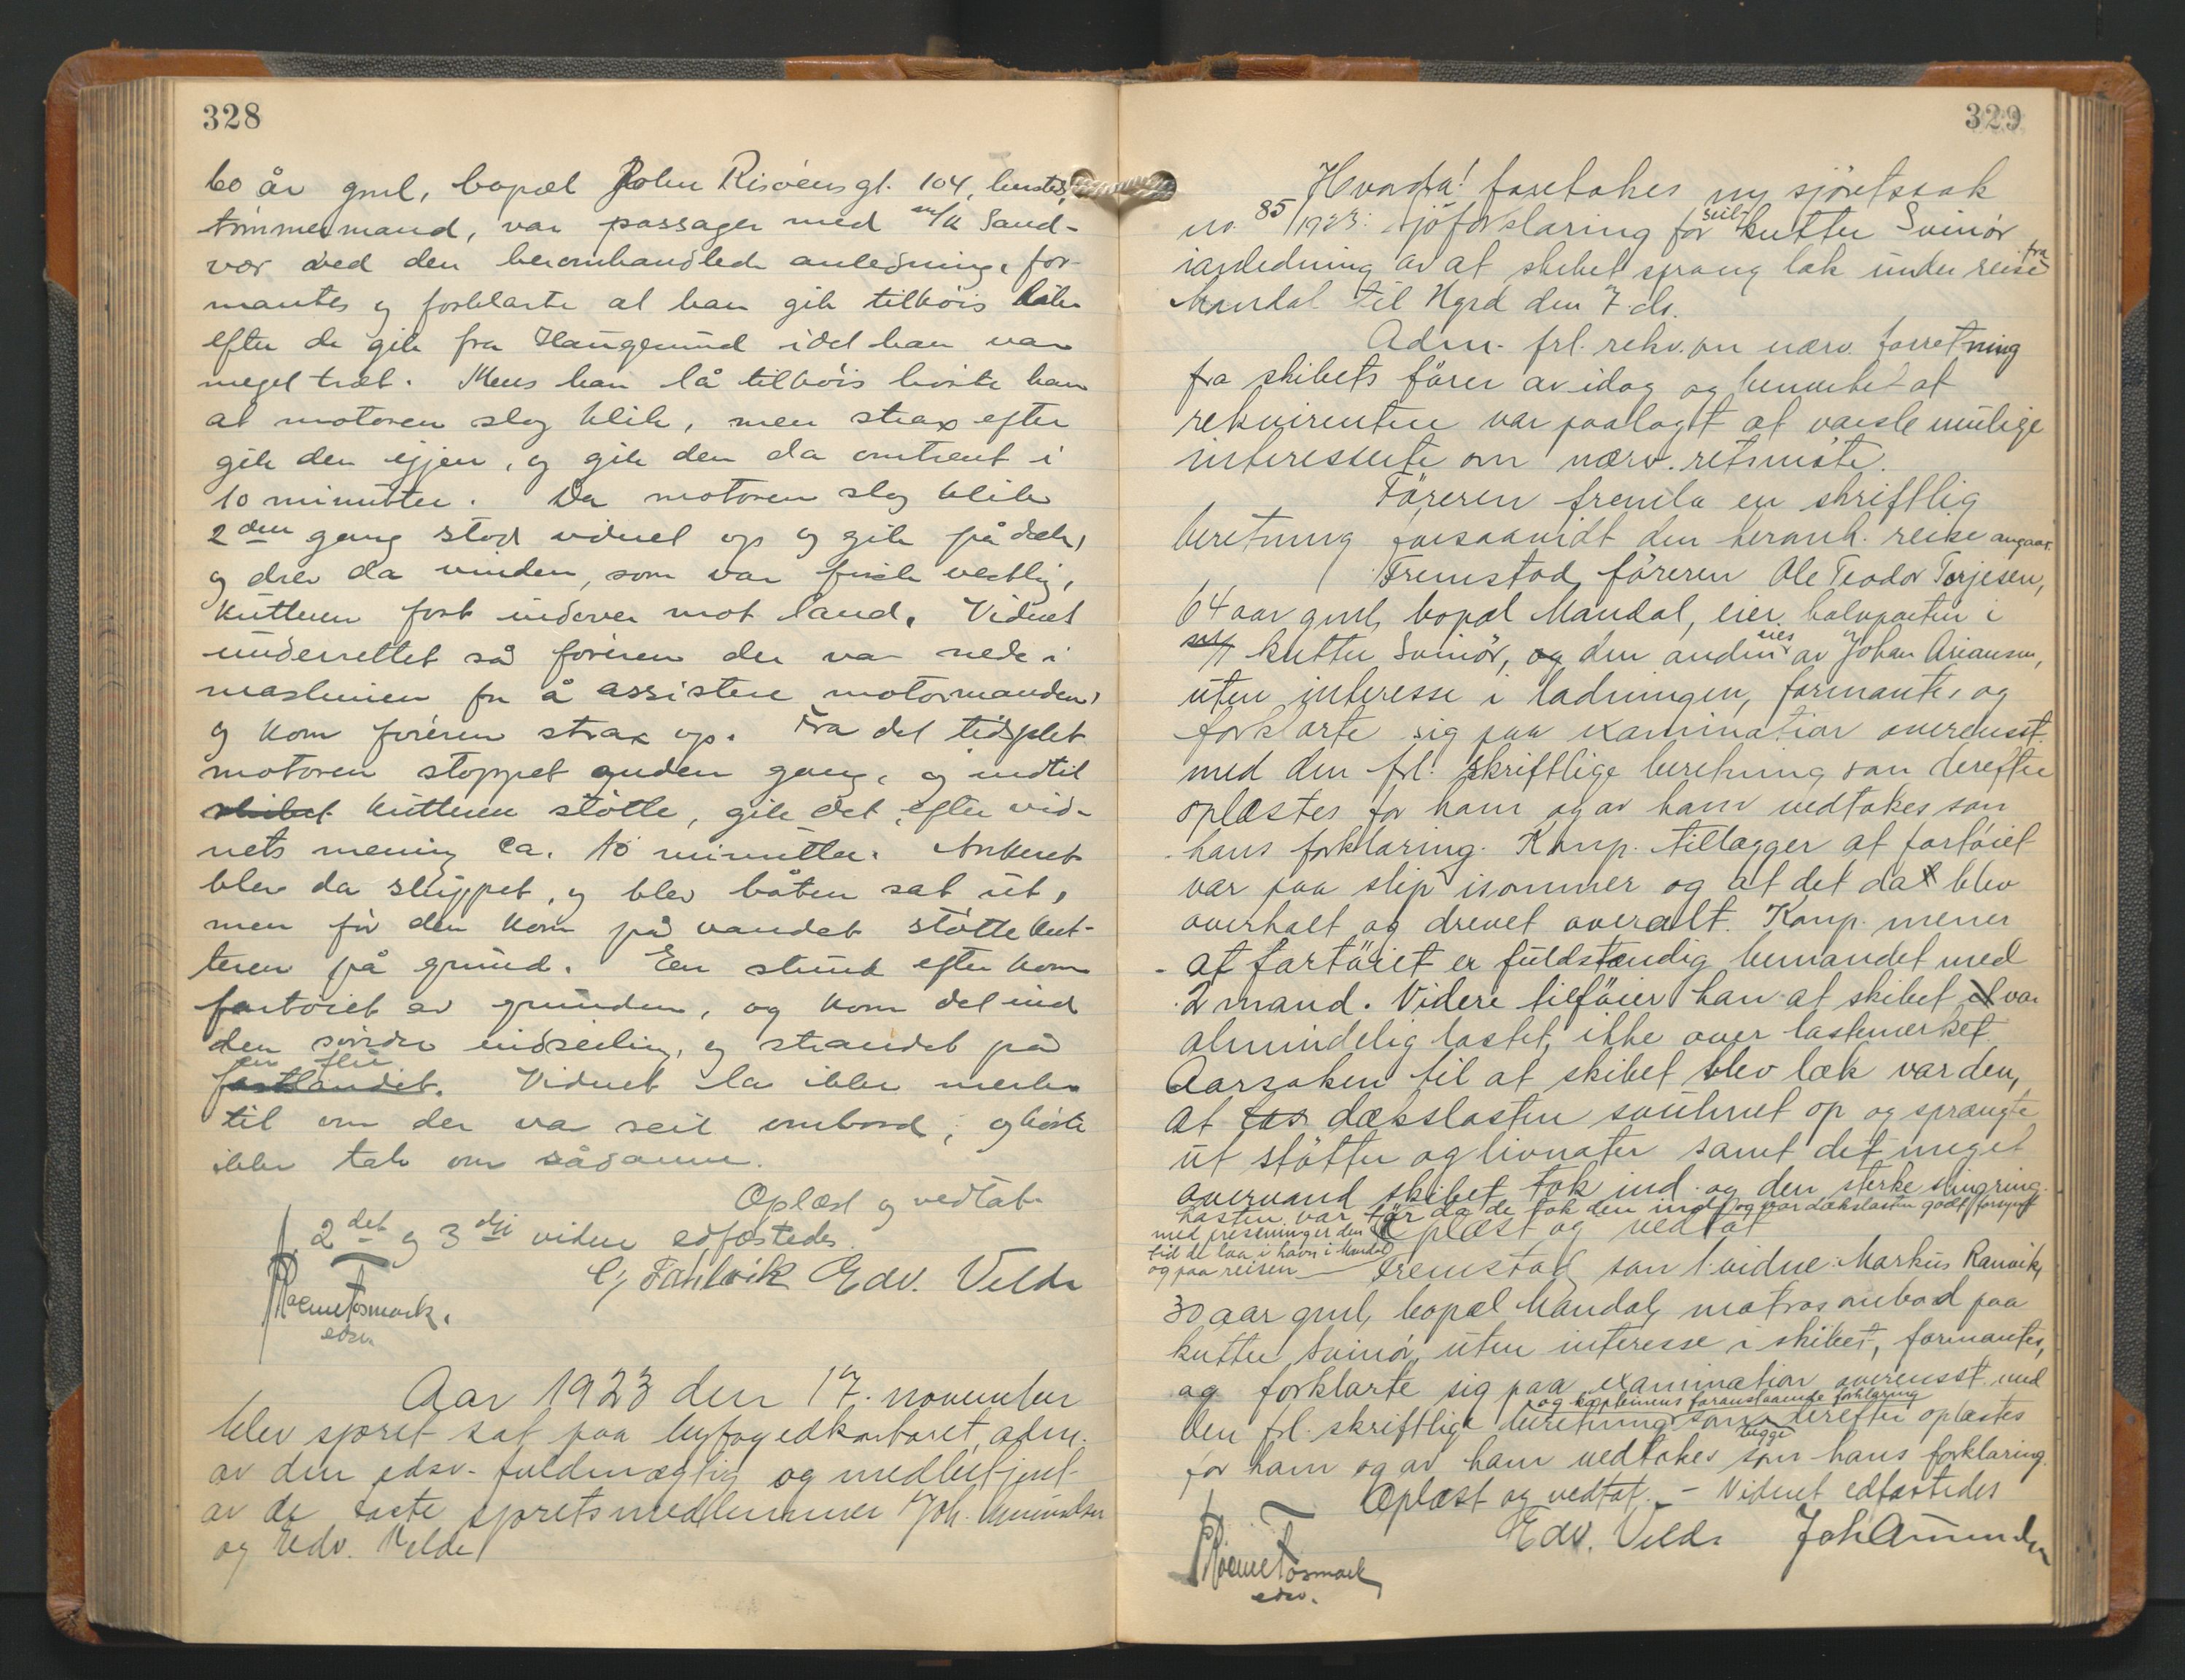 328
60 år gml, bopæl John Risöens gt. 104, hersteds,
tömmermand, var passager med m/k Sand-
vær ved den beromhandlede anledning, for-
mantes og forklarte at han gik tilköis like
efter de gik fra Haugesund idet han var
meget træt. Mens han lå tilköis hörte han
at motoren slog klik, men strax efter
gik den igjen, og gik den da omtrent i
10 minutter. Da motoren slog klik
2den gang stod vidnet op og gik på dæk,
og drev da vinden, som var frisk vestlig,
kutteren fort indover mot land. Vidnet
underrettet så föreren der var nede i
maskinen for å assistere motormanden,
og kom föreren strax op. Fra det tidspkt
motoren stoppet anden gang, og indtil
skibet kutteren stötte, gik det efter vid-
nets mening ca. 10 minutter. Ankeret
blev da sluppet, og blev båten sat ut,
men för den kom på vandet stötte kut-
teren på grund. En stund efter kom
fartöiet av grunden, og kom det ind
den söndre indseiling, og strandet på
en flu
fastlandet. Vidnet la ikke merke
til om der var seil ombord, og hörte
ikke tale om sådanne.
Oplæst og vedtat.
2det og 3dje vidne edfæstedes.
Edv. Velde
edsv.
Aar 1923 den 17. november
blev sjöret sat paa byfogedkontoret, adm.
av den edsv. fuldmægtig og medbetjent
av de faste sjöretsmedlemmer Joh. Amundsen
og Edv. Velde
329
Hvorda! foretokes ny sjöretssak
no. 85/1923: Sjöforklaring for seil- kutter Svinör
ianledning av at skibet sprang læk under reise fra
Mandal til Hgsd den 7. ds.
Adm. frl. rekv. om nærv. forretning
fra skibets förer av idag og bemerket at
rekvirenten var paalagt at varsle mulige
interesserte om nærv. retsmöte.
Föreren fremla en skriftlig
beretning forsaavidt den beromh. reise angaar.
Fremstod föreren Ole Teodor Terjesen,
64 aar gml, bopæl Mandal, eier halvparten i
kutter Svinör, og den anden eies av Johan Ariansen,
uten interesse i ladningen, formantes og
forklarte sig paa examination overensst.
med den frl. skriftlige beretning som derefter
oplæstes for ham og av ham vedtokes som
hans forklaring. Komp. tillægger at fartöiet
var paa slip isommer og at det da blev
overhalt og drevet overalt. Komp. mener
at fartöiet er fuldstændig bemandet med
2 mand. Videre tilföier han at skibet var
almindelig lastet, ikke over lastemerket.
Aarsaken til at skibet blev læk var den,
at las dækslasten svulmet op og sprængte
ut stötter og livnater samt det meget
overvand skibet tok ind og den sterke slingring.
Lasten var tör da de tok den ind og var dækslasten godt forsynt
med presenninger den
tid de laa i havn i Mandal
og paa reisen
Oplæst og vedtat
Fremstod som 1. vidne: Markus Ranvik,
30 aar gml, bopæl Mandal, matros ombord paa
kutter Svinör, uten interesse i skibet, formantes,
og forklarte sig paa examination overensst. med
den frl. skriftlige beretning og kapteinens foranstaaende forklaring som begge derefter oplæstes
for ham og av ham vedtokes som hans forklaring.
Oplæst og vedtat. - Vidnet edfæstedes
Edv. Velde Joh Amundsen
edsv.